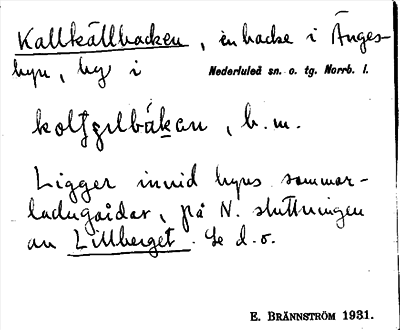 Kallkällbacken, en backe i Änges-
byn, by i Nederluleå sn. o. tg. Norrb. l.
b. m.
Ligger invid byns sommar-
ladugårdar, på N. sluttningen
av Lillberget. Se d. o.
E. BRÄNNSTRÖM 1931.